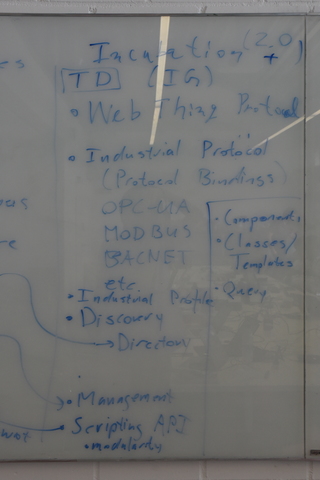 Incubation (2.0+)
TD (IG)
• Web Thing Protocol
• Industrial Protocol
(Protocol Bindings)
OPC-UA
MODBUS
BACNET
etc.
• Industrial Profile
• Discovery
→ Directory
• Components
• Classes/
Templates
• Query
• Management
• Scripting API
• modularity